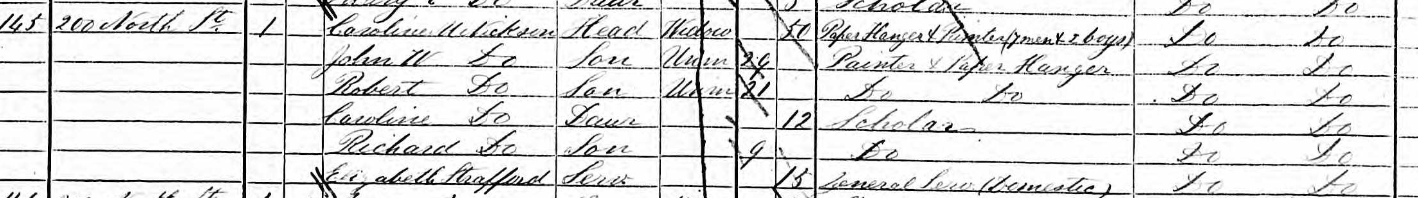 Do 5 Scholar Do Do
145 200 North St. 1 Caroline Head Widow 50 Paper Hanger & Painter (7 men & 2 boys) Do Do
John W Do Son Unm 29 Painter & Paper Hanger Do Do
Robert Do Son Unm 21 Do Do Do Do
Caroline Do Daur 12 Scholar Do Do
Richard Do Son 9 Do Do Do
Elizabeth Strafford Serv 15 General Serv (Domestic) Do Do